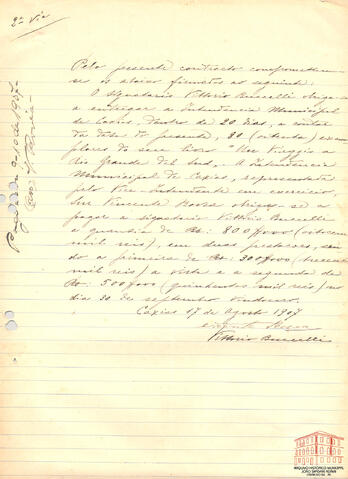 2ª Via
Pelo presente contracto compromettem-
se os abaixo firmados ao seguinte:
O signatario Vittorio Buccelli obriga-se
a entregar a Intendencia Municipal
de Caxias, dentro de 20 dias, a contar
da data do presente, 80 (oitenta) exem-
plares do seu livro "Un Viaggio a
Rio Grande del Sud". A Intendencia
Municipal de Caxias, representada
pelo Vice-Intendente em exercicio,
Snr. Vincente Rovea obriga-se a
pagar a signatario Vittorio Buccelli
a quantia de Rs: 800$000 (oitocentos
mil reis), em duas prestações, sen-
do a primeira de Rs: 300$000 (trezentos
mil reis) a vista e a segunda de
Rs: 500$000 (quinhentos mil reis) no
dia 30 de septembro vindouro.
Caxias 17 de Agosto 1907
Vicente Rovea
Vittorio Buccelli
ARQUIVO HISTÓRICO MUNICIPAL
JOÃO SPADARI ADAMI